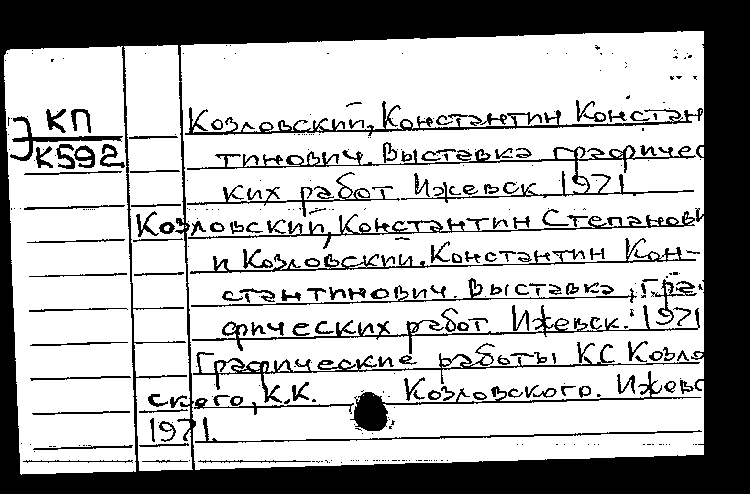 Э КП
К592
Козловский, Константин Констан
тинович. Выставка графичес
ких работ Ижевск. 1971.
Козловский, Константин Степанови
и Козловский. Константин Кон-
стантинович. Выставка, гра
фических работ. Ижевск. 1971
Графические работы К.С Козло
ского, К.К. Козловского. Ижевс
1971.